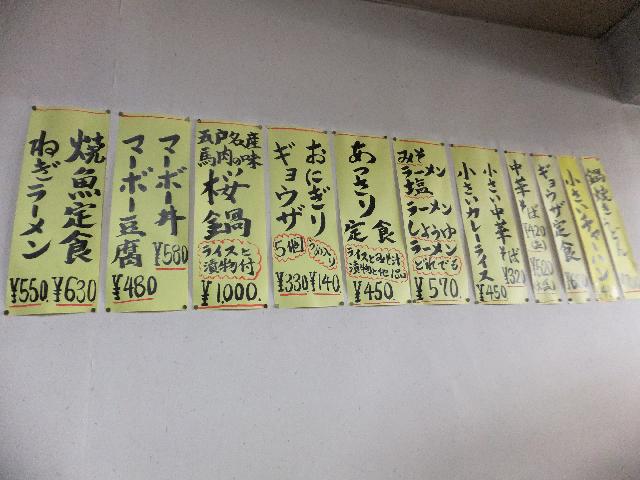 焼魚定食
¥630
ねぎラーメン
¥550
マーボー丼
¥580
マーボー豆腐
¥480
五戸名産
馬肉の味
桜鍋
ライスと
漬物付
¥1,000.
おにぎり
¥140
ギョウザ
5ケ
¥330
あっさり
定食
ライスとみそ汁
¥450
みそ
ラーメン
塩
ラーメン
しょうゆ
ラーメン
どれでも
¥570.
小さい中華そば
¥320
小さいカレーライス
¥450
中華そば
¥420
ギョウザ定食
¥620
小さいチャーハン
鍋焼きうどん